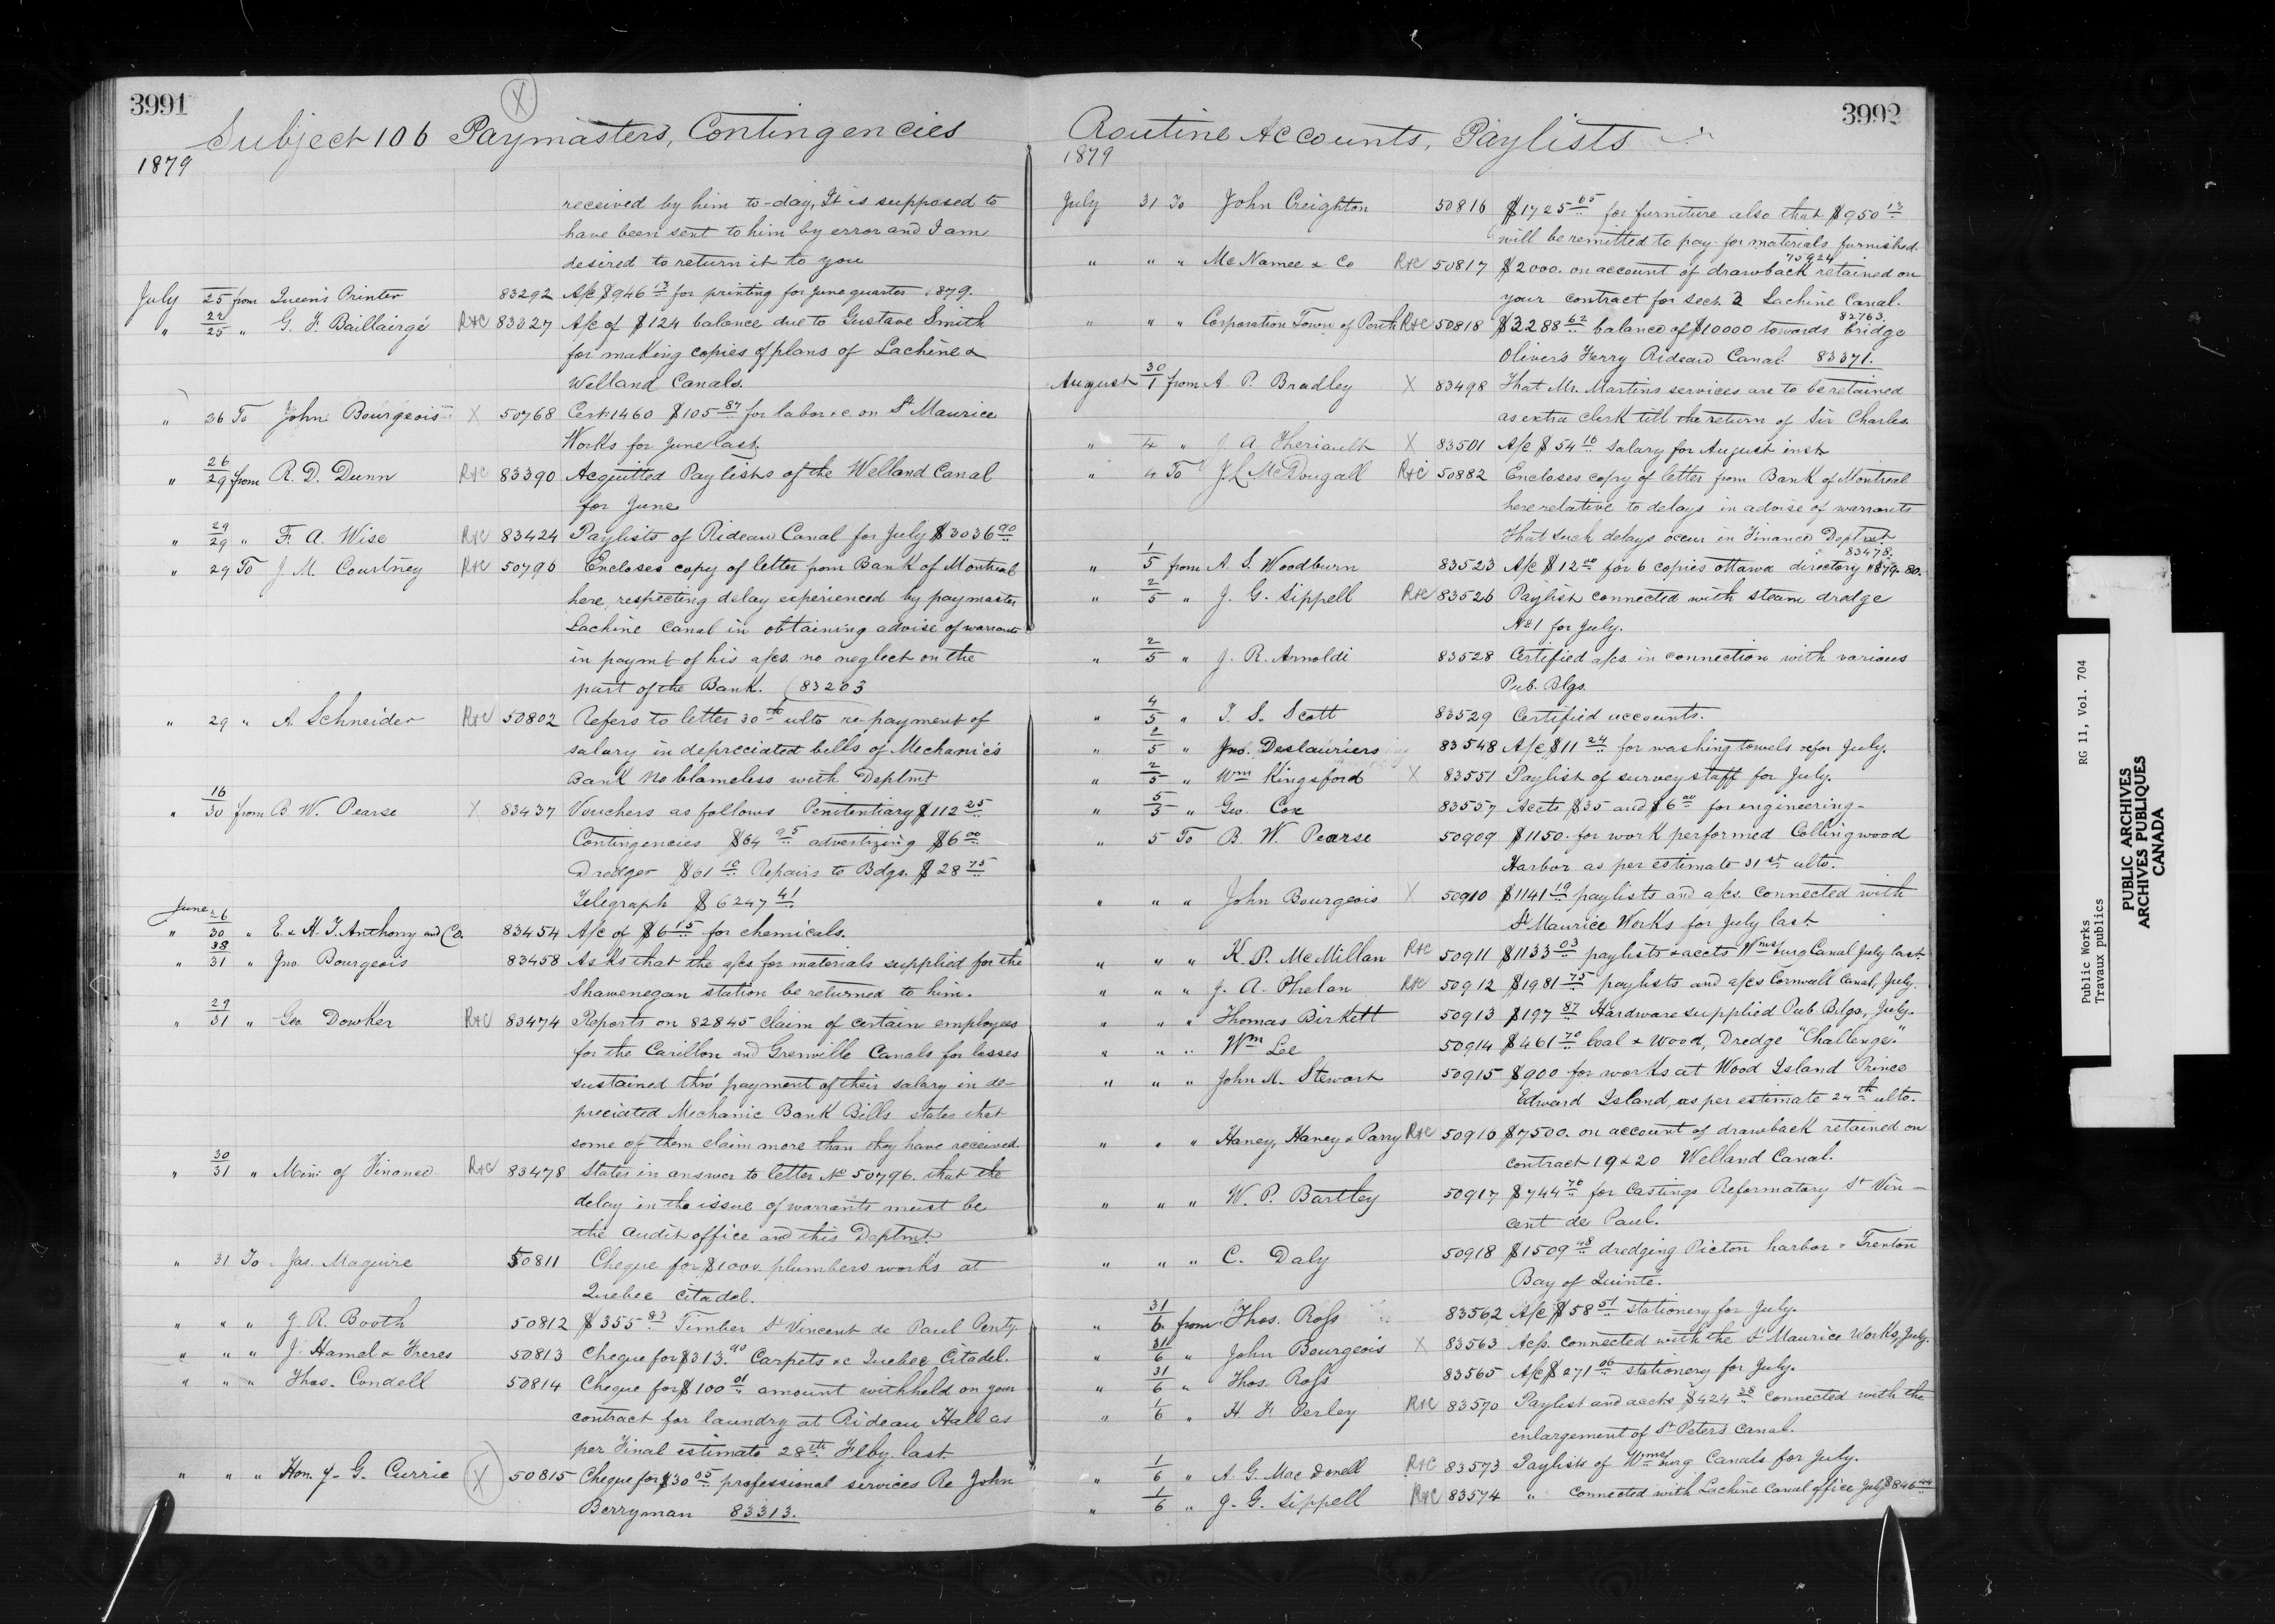 3991
X
Subject 106 Paymasters, Contingencies
1879
received by him to-day, It is supposed to
have been sent to him by error and I am
desired to return it to you
July 25 from Queen's Printer 83292 A/c $946 13 for printing for June quarter 1879.
" 22/25 " G. F. Baillairgé R+C 83327 A/c of $124 balance due to Gustave Smith
for making copies of plans of Lachine &
Welland Canals.
" 26 To John Bourgeois X 50768 Cert 1460 $105 87 for labor &c on St Maurice
Works for June last.
" 26/29 from R. D. Dunn R+C 83390 Acquitted Paylists of the Welland Canal
for June
" 29/29 " F. A. Wise R+C 83424 Paylists of Rideau Canal for July $3036 90
" 29 To J. M. Courtney R+C 50796 Encloses copy of letter from Bank of Montreal
here, respecting delay experienced by paymaster
Lachine Canal in obtaining advise of warrants
in paymt of his a/cs. no neglect on the
part of the Bank. (83203
" 29 " A. Schneider R+C 50802 Refers to letter 30th ulto re-payment of
salary in depreciated bills of Mechanics
Bank No blameless with Deptmt
" 16/30 from B. W. Pearse X 83437 Vouchers as follows Penitentiary $112 25
Contingencies $64 95 advertizing $6 00
Dredger $61 10 Repairs to Bdgs. $28 75
Telegraph $6247 41
June
" 26/30 " E. & H. T. Anthony and Co. 83454 A/c of $6 15 for chemicals.
" 38/31 " Jno. Bourgeois 83458 Asks that the a/cs for materials supplied for the
Shawenegan station be returned to him.
" 29/31 " Geo. Dowker R+C 83474 Reports on 82845 claim of certain employees
for the Carillon and Grenville Canals for losses
sustained thro' payment of their salary in de-
preciated Mechanic Bank Bills states that
some of them claim more than they have received.
" 30/31 " Min. of Finance R+C 83478 States in answer to letter No 50796. that the
delay in the issue of warrants must be
the audit office and this Deptmt.
" 31 To Jas. Maguire 50811 Cheque for $1000. plumbers works at
Quebec Citadel.
" " " J. R. Booth 50812 $355 83 Timber St Vincent de Paul Penty.
" " " J. Hamel & Freres 50813 Cheque for $313. 90 Carpets &c Quebec Citadel.
" " " Thos. Condell 50814 Cheque for $100 01 amount withheld on your
contract for laundry at Rideau Hall as
per Final estimate 28th Feby. last
" " " Hon. J. G. Currie X 50815 Cheque for $30 05 professional services Re John
Berryman 83313.
3992
Routine Accounts, Paylists
1879
July 31 To John Creighton 50816 $1725 05 for furniture also that $950 13
will be remitted to pay for materials furnished.
75924
" " " McNamee & Co R+C 50817 $2000. on account of drawback retained on
your contract for Sect. 2 Lachine Canal.
82763.
" " " Corporation Town of Perth R+C 50818 $3288 62 balance of $10000 towards bridge
Olivers Ferry Rideau Canal 83371.
August 30/1 from A. P. Bradley X 83498 That Mr. Martins services are to be retained
as extra clerk till the return of Sir Charles.
" 4 " J A. Theriault X 83501 A/c $54 16 salary for August inst
" 4 To J. L. McDougall R+C 50882 Encloses copy of letter from Bank of Montreal
here relative to delays in advise of warrants
That such delays occur in Finance Deptmt
83478.
" 1/5 from A. S. Woodburn 83523 A/c $12 00 for 6 copies Ottawa directory 1879-80.
" 2/5 " J. G. Sippell R+C 83526 Paylist connected with steam dredge
No 1 for July.
" 2/5 " J. R. Arnoldi 83528 Certified a/cs. in connection with various
Pub. Blgs.
" 4/5 " T. S. Scott 83529 Certified accounts.
" 2/5 " Jno. Deslauriers 83548 A/c $11 24 for washing towels &c for July.
" 2/5 " Wm Kingsford X 83551 Paylist of survey staff for July.
" 5/5 " Geo. Cox 83557 Accts $35 and $6 00 for engineering-
" 5 To B. W. Pearse 50909 $1150. for work performed Collingwood
Harbor as per estimate 31st ulto.
" " " John Bourgeois X 50910 $1141 19 paylists and a/cs. connected with
St Maurice Works for July last.
" " " K. P. McMillan R+C 50911 $1133 03 paylists & accts Wmsburg Canal July last
" " " J. A. Phelan R+C 50912 $1981 75 paylists and a/cs Cornwall Canal, July.
" " " Thomas Birkett 50913 $197 87 Hardware supplied Pub Bdgs, July.
" " " Wm Lee 50914 $461 70 Coal & Wood, Dredge "Challenge."
" " " John M. Stewart 50915 $900 for works at Wood Island Prince
Edward Island, as per estimate 24th ulto.
" " " Haney, Haney & Parry R+C 50916 $7500. on account of drawback retained on
contract 19 & 20 Welland Canal.
" " " W. P. Bartley 50917 $744 76 for Castings Reformatory St Vin-
cent de Paul.
" " " C. Daly 50918 $1509 48 dredging Picton harbor & Trenton
Bay of Quinte.
" 31/6 from Thos. Ross 83562 A/c $58 51 stationery for July.
" 31/6 " John Bourgeois X 83563 Acs. connected with the St Maurice Works, July.
" 31/6 " Thos. Ross 83565 A/c $271 06 stationery for July.
" 1/6 " H. F. Perley R+C 83570 Paylist and accts $424 38 connected with the
enlargement of St Peters Canal.
" 1/6 " A. G. MacDonell R+C 83573 Paylists of Wmsburg Canals for July.
" 1/6 " J. G. Sippell R+C 83574 " connected with Lachine Canal office July $846 44
Public Works RG 11, Vol. 704
Travaux publics
PUBLIC ARCHIVES
ARCHIVES PUBLIQUES
CANADA